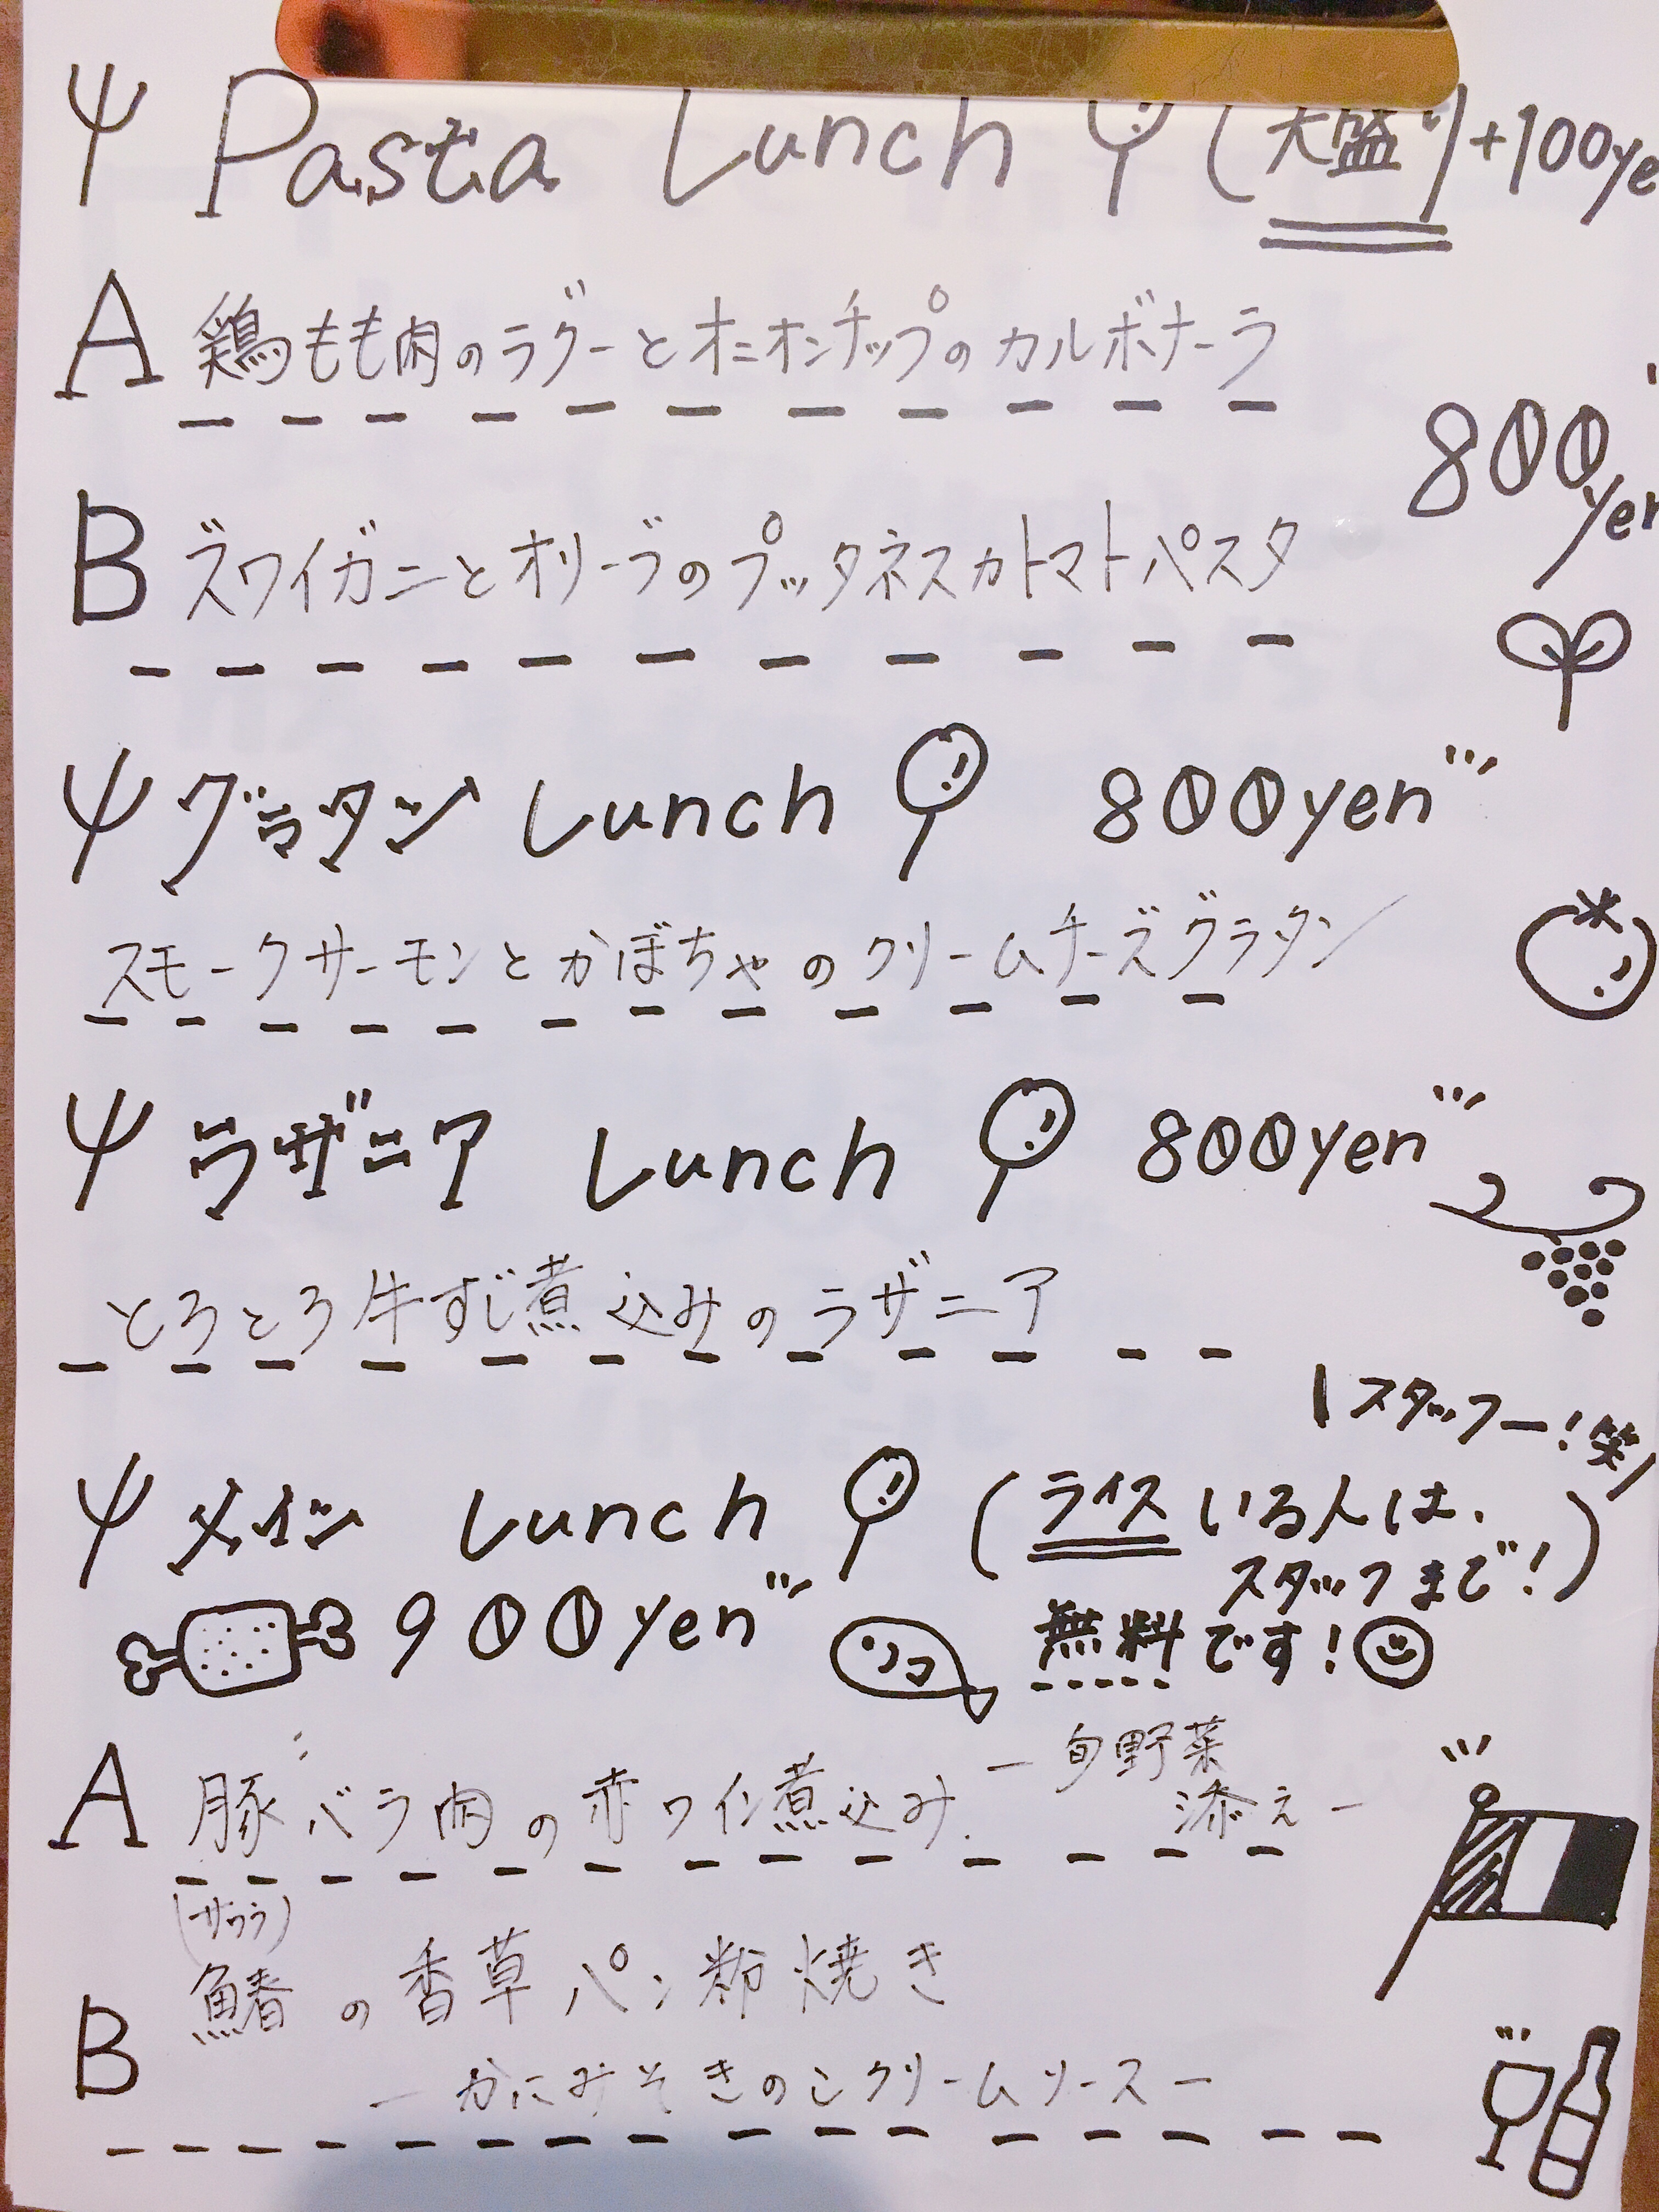 Pasta Lunch (大盛り+100ye
A 鶏もも肉のラグーとオニオンチップのカルボナーラ
800yen
B ズワイガニとオリーブのプッタネスカトマトパスタ
グラタン Lunch 800yen
スモークサーモンとかぼちゃのクリームチーズグラタン
ラザニア Lunch 800yen
とろとろ牛すじ煮込みのラザニア
スタッフー!笑
メイン Lunch (ライスいる人は、
スタッフまで!)
900yen 無料です!
A 豚バラ肉の赤ワイン煮込み -旬野菜
添え-
(サワラ)
B 鰆の香草パン粉焼き
-かにみそきのこクリームソース-